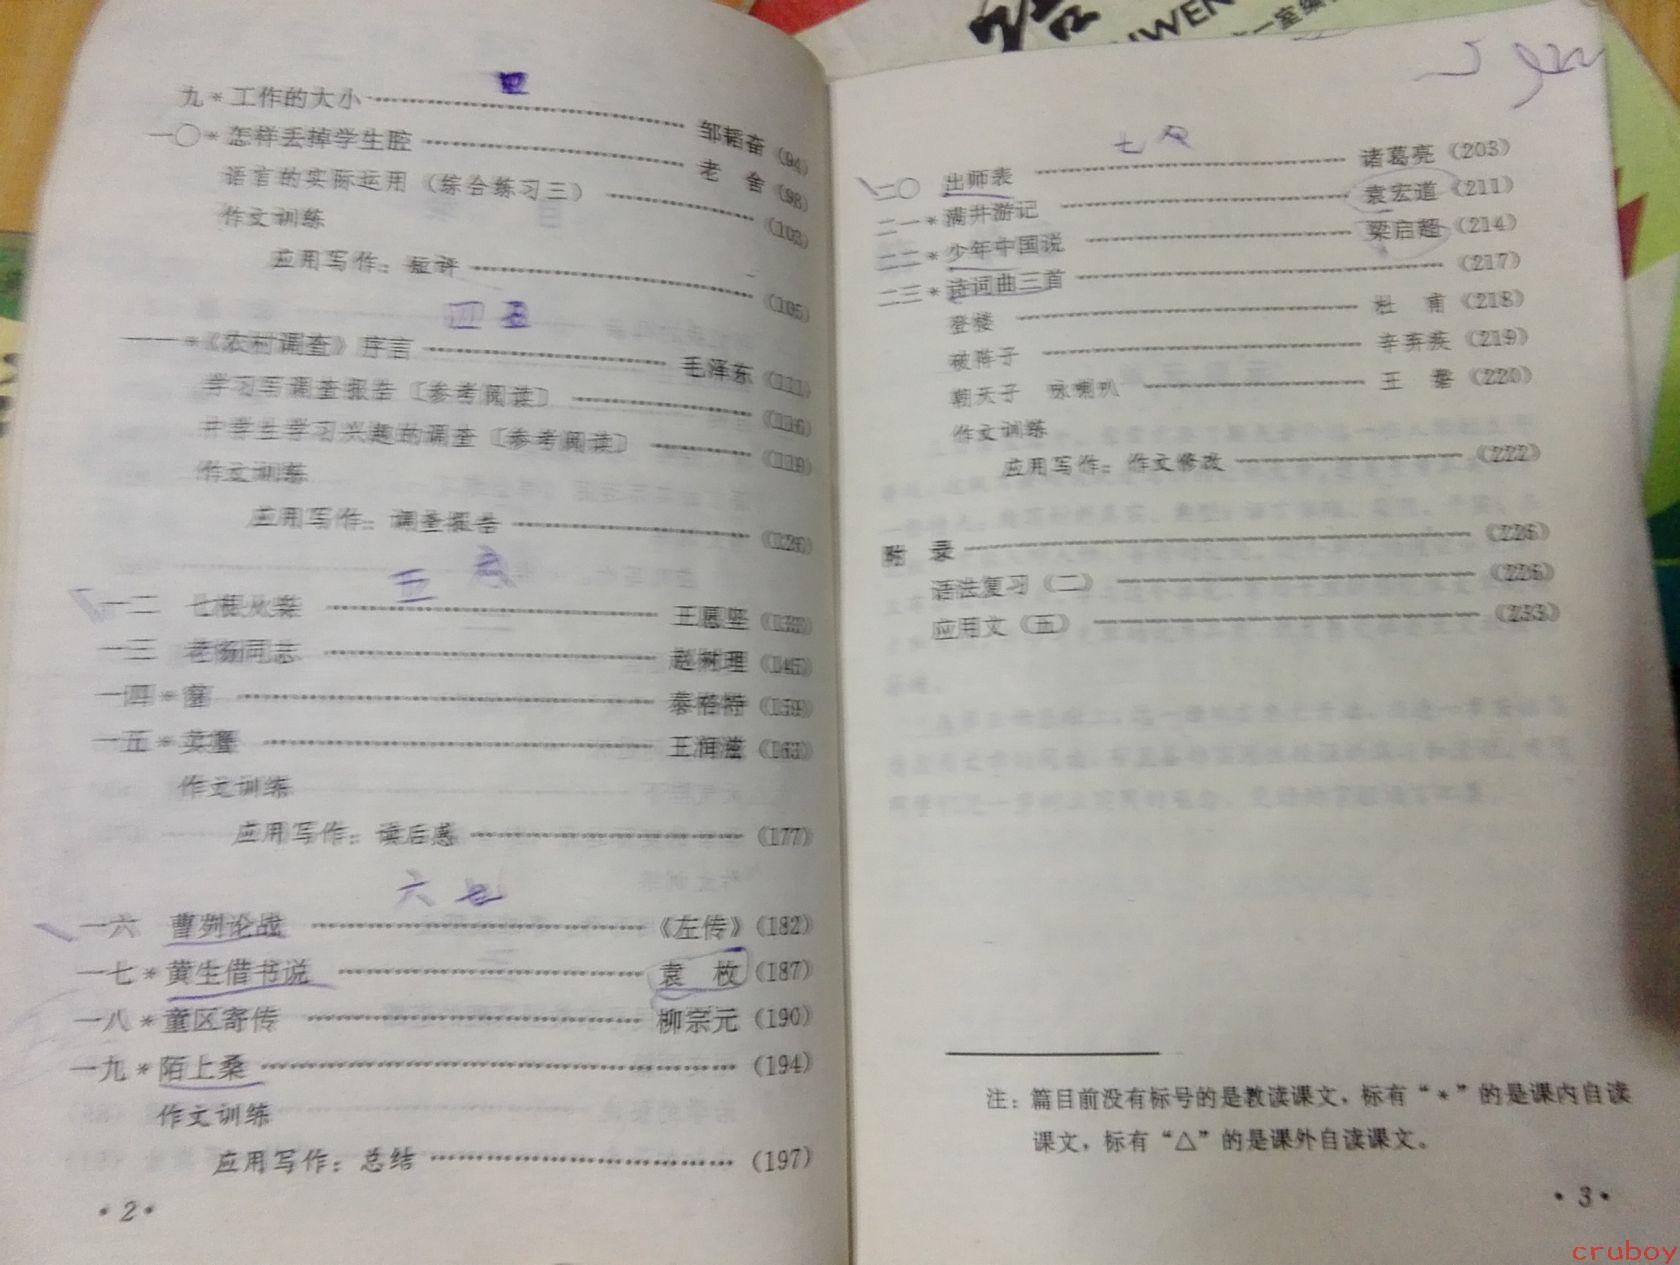 四
九*工作的大小 邹韬奋(94)
一〇*怎样丢掉学生腔 老 舍(98)
语言的实际运用（综合练习三） (103)
作文训练
应用写作：短评 (105)
四 五
一一*《农村调查》序言 毛泽东(111)
学习写调查报告〔参考阅读〕 (116)
中学生学习兴趣的调查〔参考阅读〕 (119)
作文训练
应用写作：调查报告
五 六
一二 七根火柴 王愿坚
一三 老杨同志 赵树理(145)
一四* 泰格特(159)
一五*卖蟹 王润滋(163)
作文训练
应用写作：读后感 (177)
六 七
一六 曹刿论战 《左传》(182)
一七*黄生借书说 袁 枚(187)
一八*童区寄传 柳宗元(190)
一九*陌上桑 (194)
作文训练
应用写作：总结 (197)
·2·
WEN
一室编
七
二〇 出师表 诸葛亮(203)
二一*满井游记 袁宏道(211)
二二*少年中国说 梁启超(214)
二三*诗词曲三首 (217)
登楼 杜 甫(218)
破阵子 辛弃疾(219)
朝天子 咏喇叭 王 磐(220)
作文训练
应用写作：作文修改 (222)
附 录 (226)
语法复习（二） (226)
应用文（五） (233)
注：篇目前没有标号的是教读课文，标有“*”的是课内自读
课文，标有“△”的是课外自读课文。
·3·
cruboy